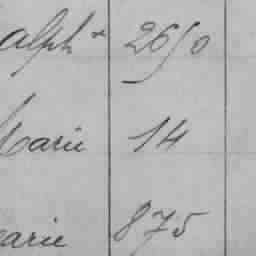 alph x 2650
Marie 14
arie 875